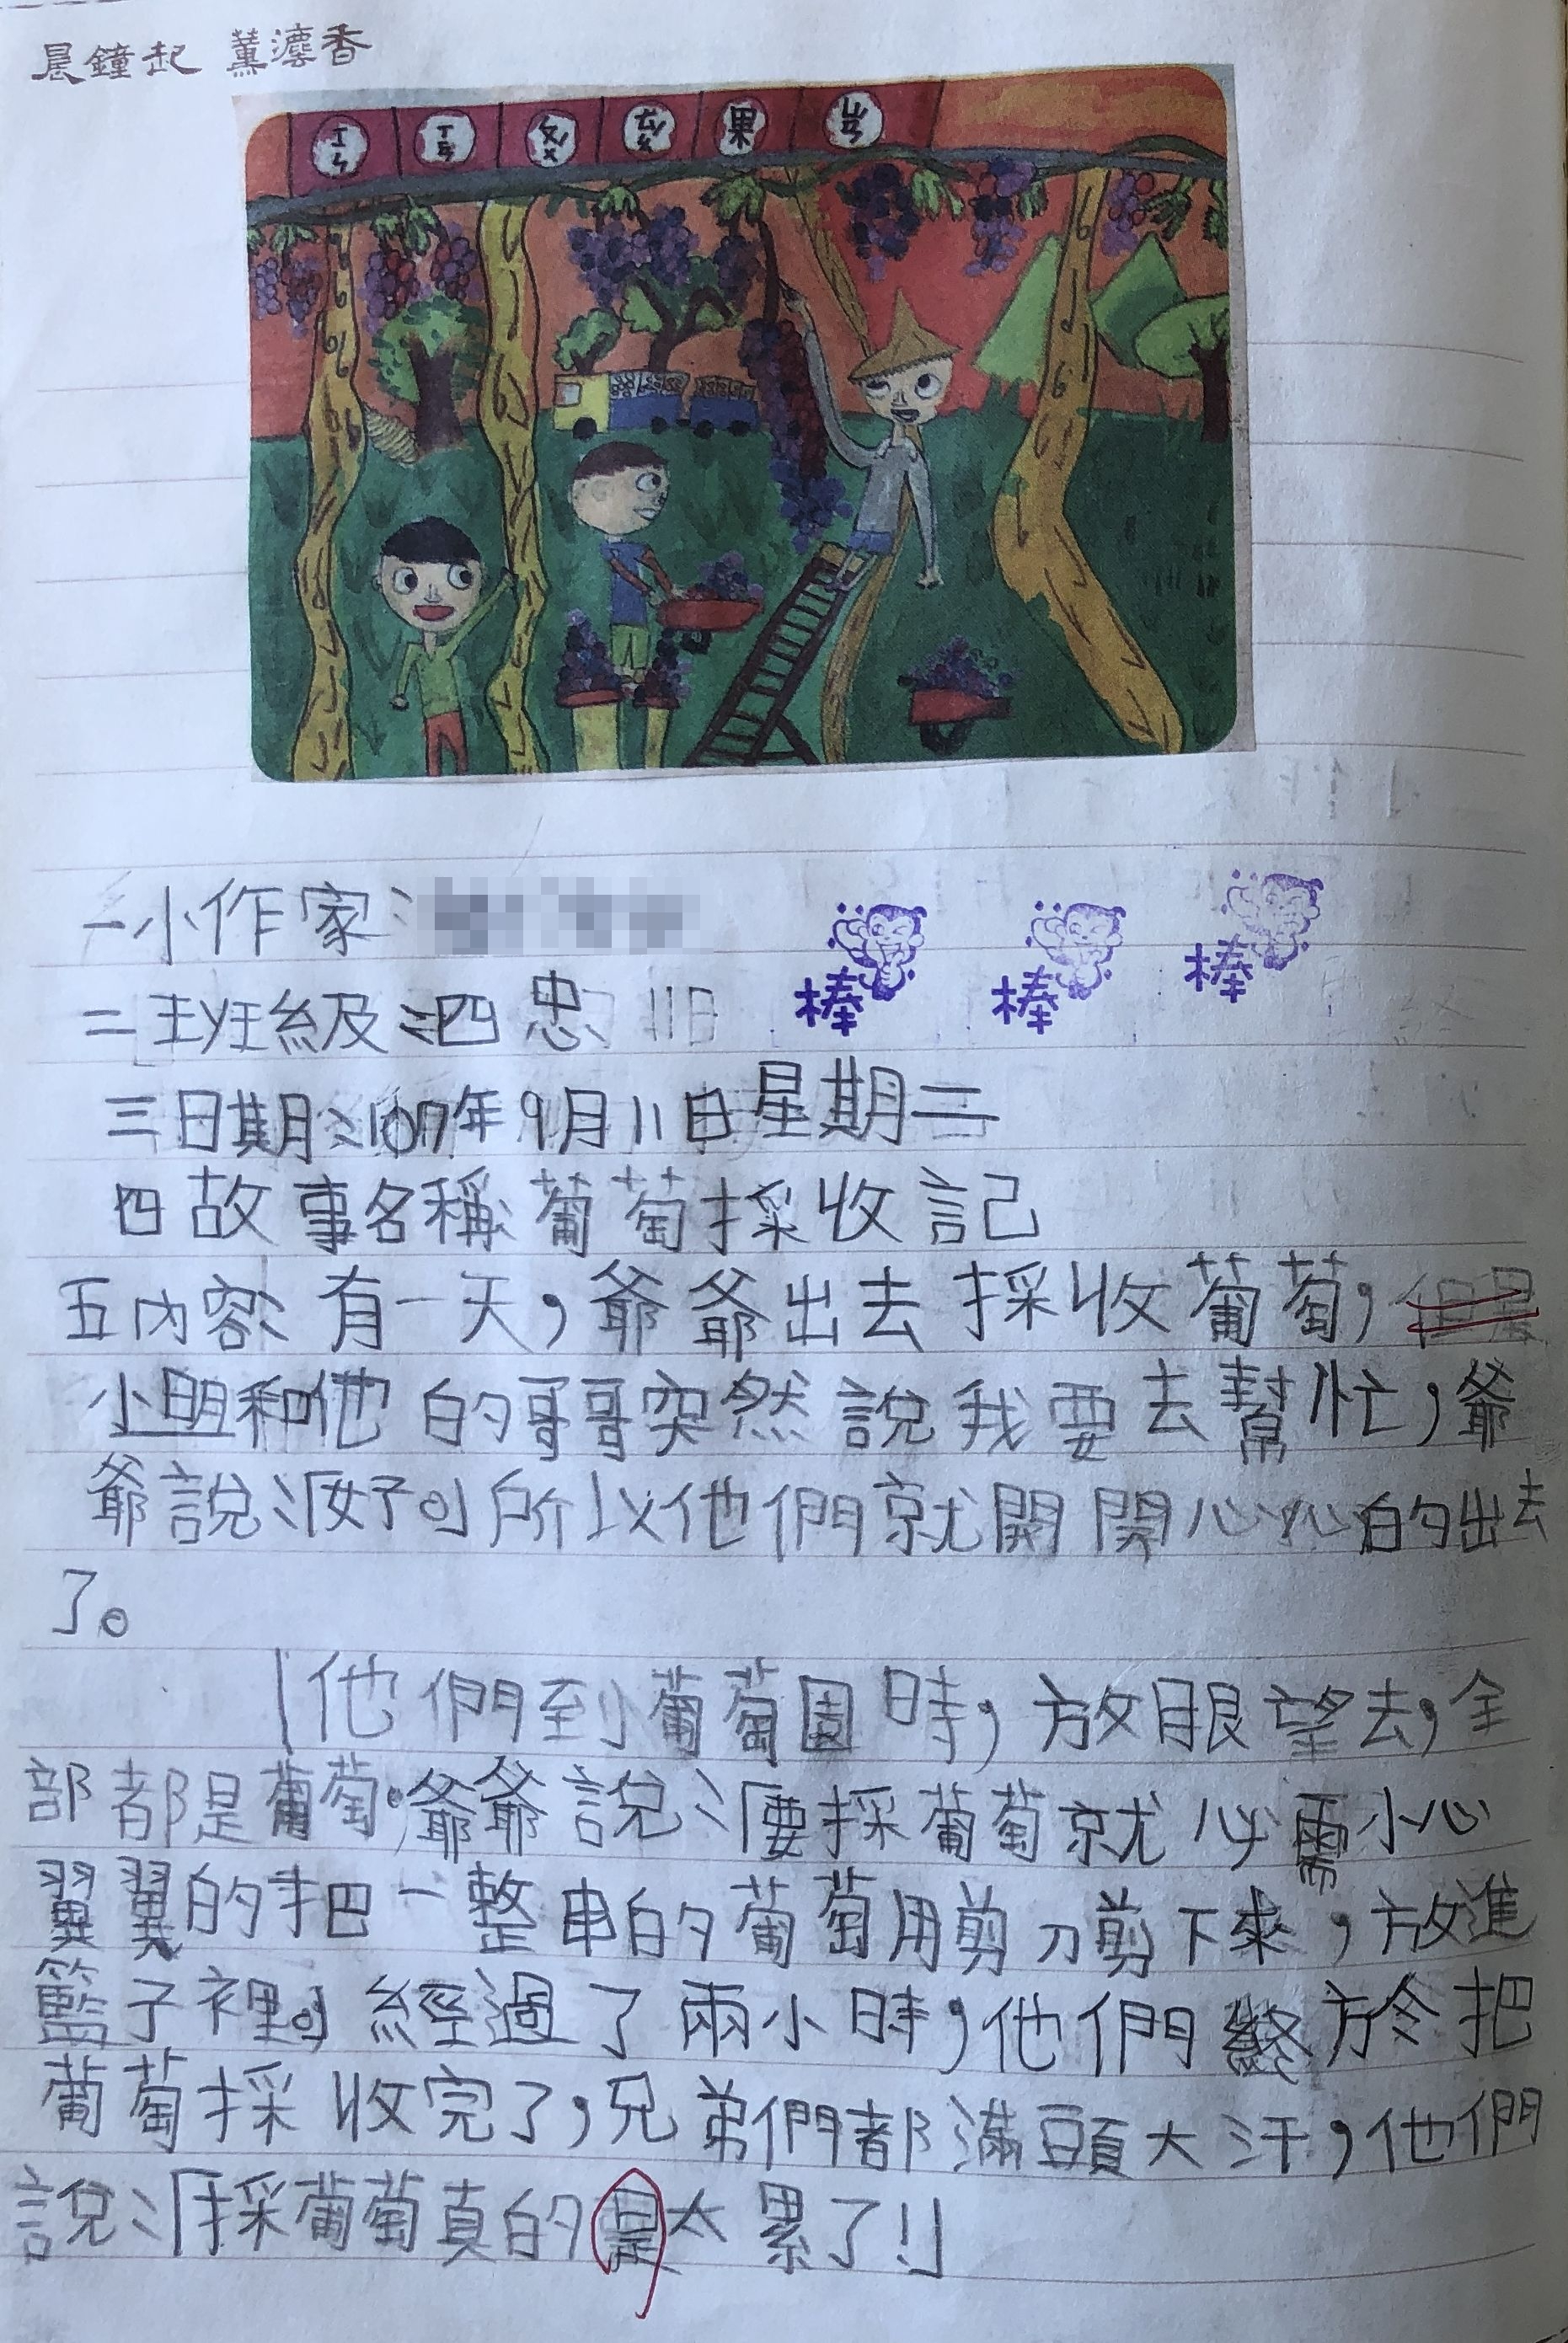 晨鐘起 薰濃香
ㄒㄣ ㄒㄩㄢ 果
一小作家:
二班級:四忠
棒 棒 棒
三日期:107年9月11日星期二
四故事名稱葡萄採收記
五內容:有一天,爺爺出去採收葡萄,但是
小明和他的哥哥突然說我要去幫忙,爺
爺說:「好。」所以他們就開開心心的出去
了。
他們到葡萄園時,放眼望去,全
部都是葡萄。爺爺說:「要採葡萄就必需小心
翼翼的把一整串的葡萄用剪刀剪下來,放進
籃子裡。」經過了兩小時,他們終於把
葡萄採收完了,兄弟們都滿頭大汗,他們
說:「採葡萄真的是太累了!」